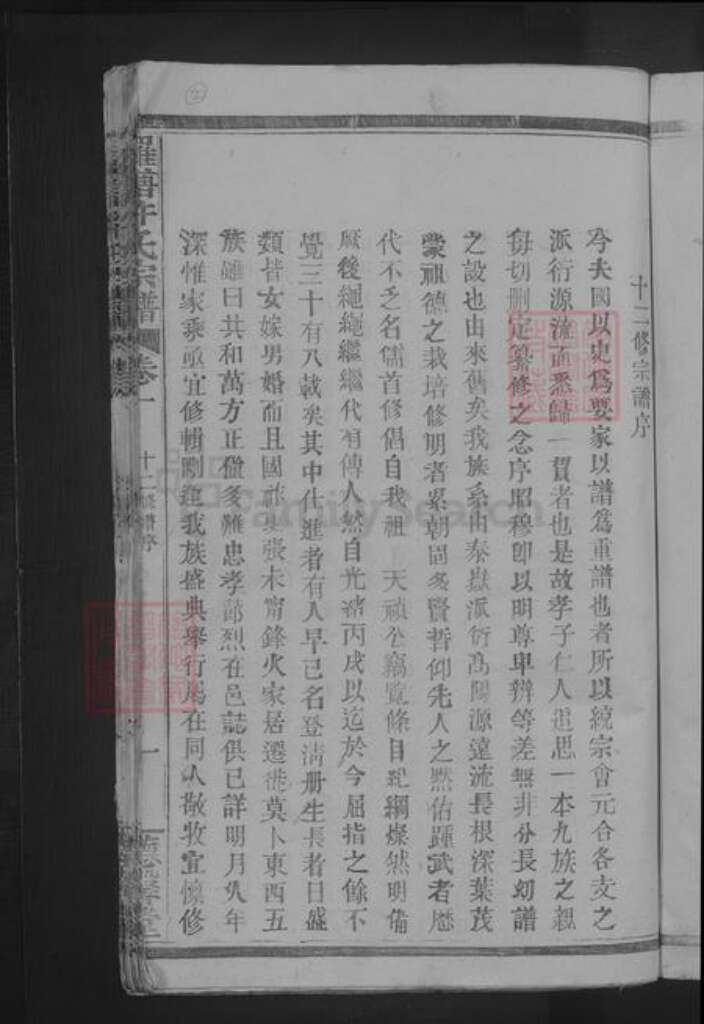 十二修宗譜序
今夫國以史爲要家以譜爲重譜也者所以統宗會元合各支之
派衍源流而悉歸一貫者也是故孝子仁人追思一本九族之親
每切刪定纂修之念序昭穆即以明尊卑辨等差無非分長幼譜
之設也由來舊矣我族系由泰嶽派衍高陽源遠流長根深葉茂
蒙祖德之栽培修明者累朝固多賢哲仰先人之默佑踵武者歷
代不乏名儒首修倡自我祖 天禎公竊覽條目錐綱燦然明備
厥後繩繩繼繼代有傳人然自光緒丙戌以迄於今屈指之餘不
覺三十有八載矣其中仕進者有人早已名登淸册生長者日盛
類皆女嫁男婚而且國 未甯鋒火家居遷徙莫卜東西五
族雖曰共和萬方正儆多難忠孝節烈在邑誌俱已詳明月久年
深惟家乘亟宜修輯 我族盛典舉行 在同人敬敬宜愼修
許氏宗譜 卷一
十二修譜序
一